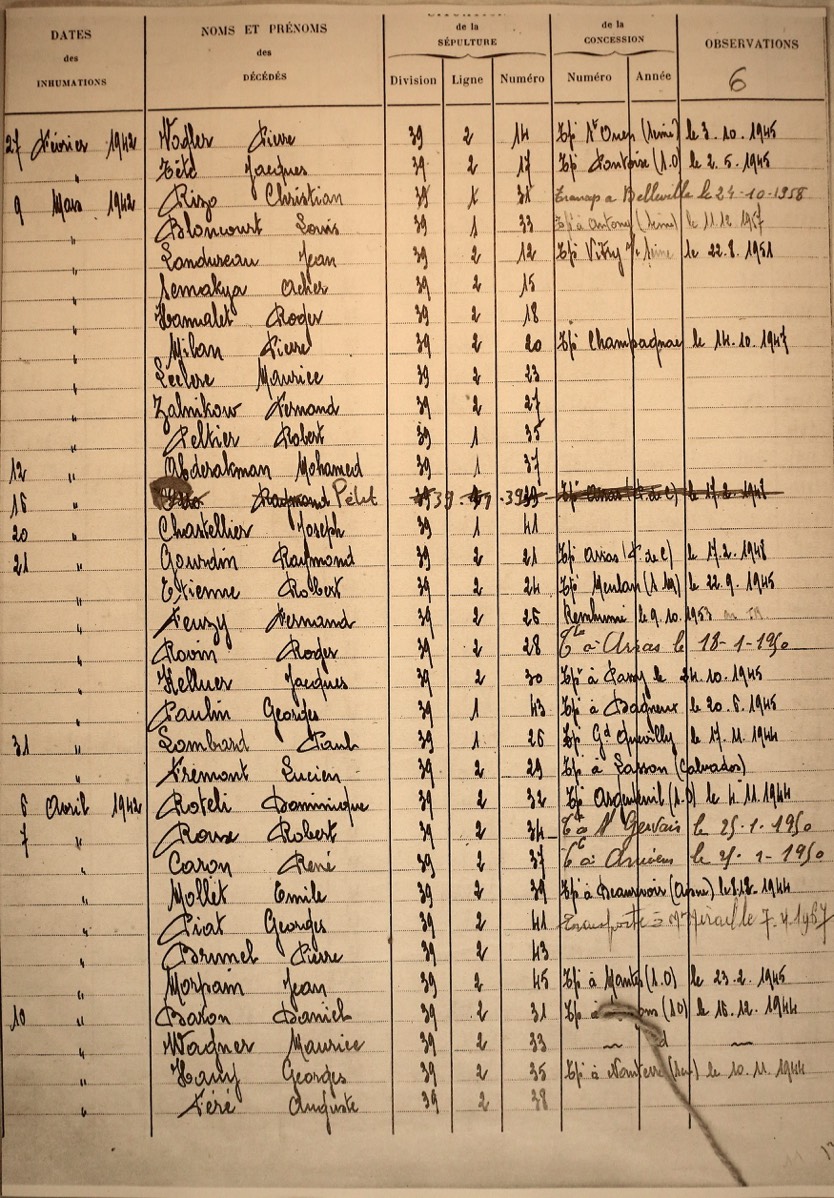 DATES des INHUMATIONS NOMS ET PRÉNOMS des DÉCÉDÉS de la SÉPULTURE de la CONCESSION OBSERVATIONS
Division Ligne Numéro Numéro Année 6
27 Février 1942 Wadler Pierre 39 2 14 Tpé St Ouen (Seine) le 3.10.1945
" Tété Jacques 39 2 17 Tpé Pontoise (S.O) le 2.5.1945
9 Mars 1942 Rizo Christian 39 1 31 Transp a Belleville le 24-10-1958
" Bloncourt Louis 39 1 33 Tpé à Antony (Seine) le 11.12.1957
" Landureau Jean 39 2 12 Tpé Vitry s/ Seine le 22.8.1951
" Semakya Acher 39 2 15
" Hamalet Roger 39 2 18
" Milan Pierre 39 2 20 Tpé Champagnac le 14.10.1947
" Leclerc Maurice 39 2 23
" Zalnikow Fernand 39 2 27
" Peltier Robert 39 1 35
12 " Abderakman Mohamed 39 1 37
16 " Raymond Pétit 39 39 Tpé Arras (P. de C) le 17.2.1948
20 " Chastellier Joseph 39 1 41
21 " Gourdin Raymond 39 2 21 Tpé Arras (P. de C) le 17.2.1948
" Etienne Robert 39 2 24 Tpé Meulan le 22.9.1945
" Feuzy Fernand 39 2 26 Reinhumé le 9.10.1953
" Rovin Roger 39 2 28 à Arras le 18-1-1950
" Kellner Jacques 39 2 30 Tpé à Passy le 24.10.1945
" Paulin Georges 39 1 43 Tpé à Bagneux le 20.6.1945
31 " Lombard Paul 39 1 26 Tpé Gd Quevilly le 17.11.1944
" Frémont Lucien 39 2 29 Tpé à Sasson (Calvados)
6 Avril 1942 Roteli Dominique 39 2 32 Tpé Argenteuil (S.O) le 4.11.1944
7 " Roux Robert 39 2 34 à St Gervais le 25-1-1950
" Caron René 39 2 37 à Amiens le 21-1-1950
" Mollet Emile 39 2 39 Tpé à Beaurevoir (Aisne) 1944
" Piat Georges 39 2 41 Transporté à
" Brunel Pierre 39 2 43
" Morpain Jean 39 2 45 Tpé à Mantes (S.O) le 23.2.1945
10 " Baron Daniel 39 2 31 Tpé à (S.O) le 16.12.1944
" Wagner Maurice 39 2 33 — d —
" Hauy Georges 39 2 35 Tpé à Nanterre le 10.11.1944
" Féré Auguste 39 2 38